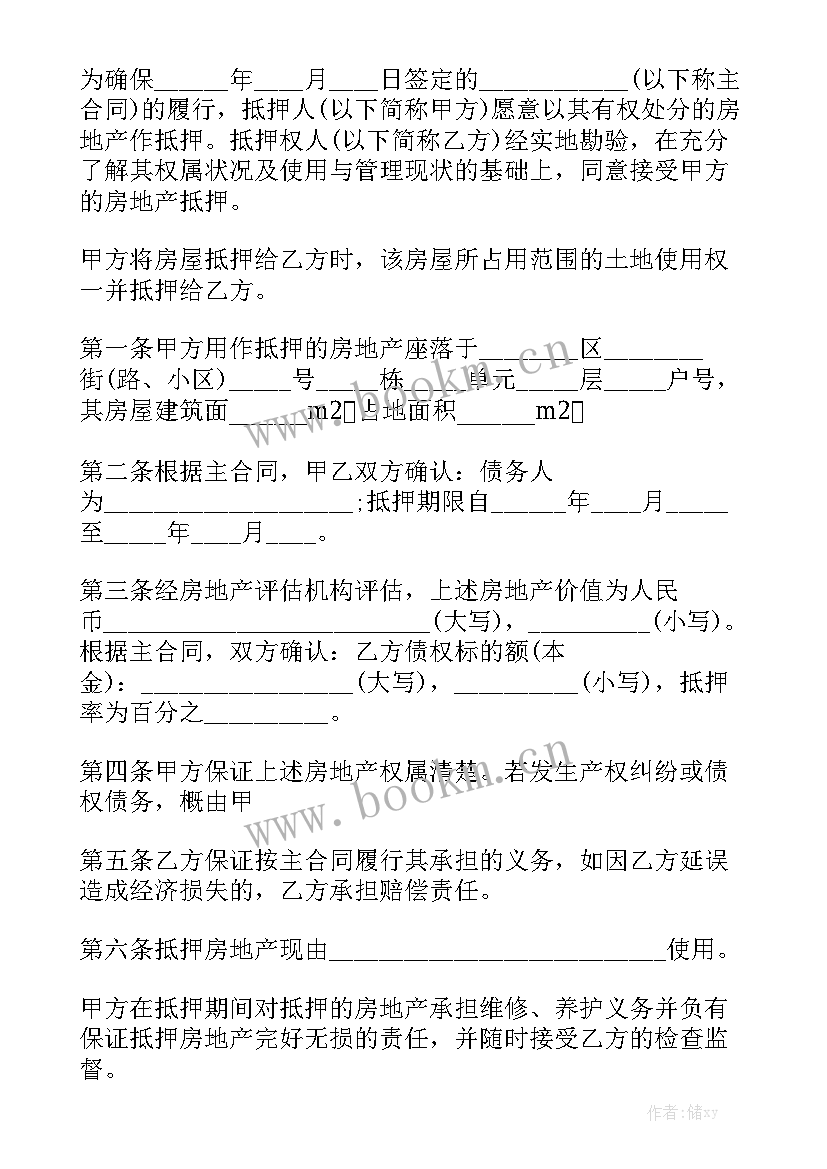 为确保______年____月____日签定的____________(以下称主
合同)的履行，抵押人(以下简称甲方)愿意以其有权处分的房
地产作抵押。抵押权人(以下简称乙方)经实地勘验，在充分
了解其权属状况及使用与管理现状的基础上，同意接受甲方
的房地产抵押。
甲方将房屋抵押给乙方时，该房屋所占用范围的土地使用权
一并抵押给乙方。
第一条甲方用作抵押的房地产座落于________区________
街(路、小区)_____号_____栋_____单元_____层_____户号，
其房屋建筑面______m2占地面积______m2
第二条根据主合同，甲乙双方确认：债务人
为____________________;抵押期限自______年____月_____
至_____年____月____。
第三条经房地产评估机构评估，上述房地产价值为人民
币__________________________(大写)，__________(小写)。
根据主合同，双方确认：乙方债权标的额(本
金)：_________________(大写)，__________(小写)，抵押
率为百分之__________。
第四条甲方保证上述房地产权属清楚。若发生产权纠纷或债
权债务，概由甲
第五条乙方保证按主合同履行其承担的义务，如因乙方延误
造成经济损失的，乙方承担赔偿责任。
第六条抵押房地产现由___________________________使用。
甲方在抵押期间对抵押的房地产承担维修、养护义务并负有
保证抵押房地产完好无损的责任，并随时接受乙方的检查监
督。
www.bookm.cn
www.bookm.cn
作者:储xy